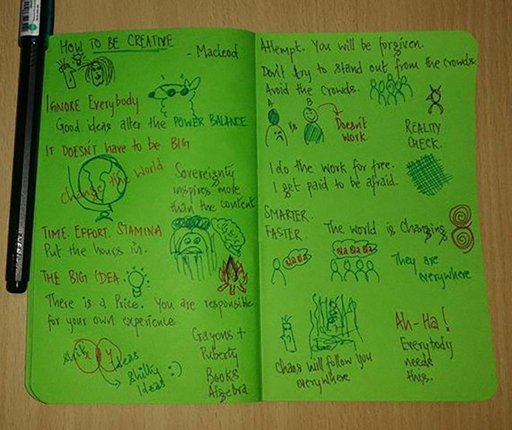 HOW TO BE CREATIVE
- Macleod
IGNORE Everybody
Good ideas alter the POWER BALANCE
IT DOESN'T have to be BIG
change the world
Sovereignty
inspires more
than the content
TIME. EFFORT. STAMINA
Put the hours in.
THE BIG IDEA
There is a Price. You are responsible
for your own experience
Shitty Ideas :)
Crayons +
Puberty
Books
Algebra
Attempt. You will be forgiven.
Don't try to stand out from the crowds
Avoid the crowds.
A vs B
Doesn't
work
REALITY
CHECK.
I do the work for free.
I get paid to be afraid.
SMARTER.
FASTER.
The world is Changing
Bla Bla Bla
They are
everywhere
Chaos will follow you
everywhere
Ah-Ha!
Everybody
needs
this.